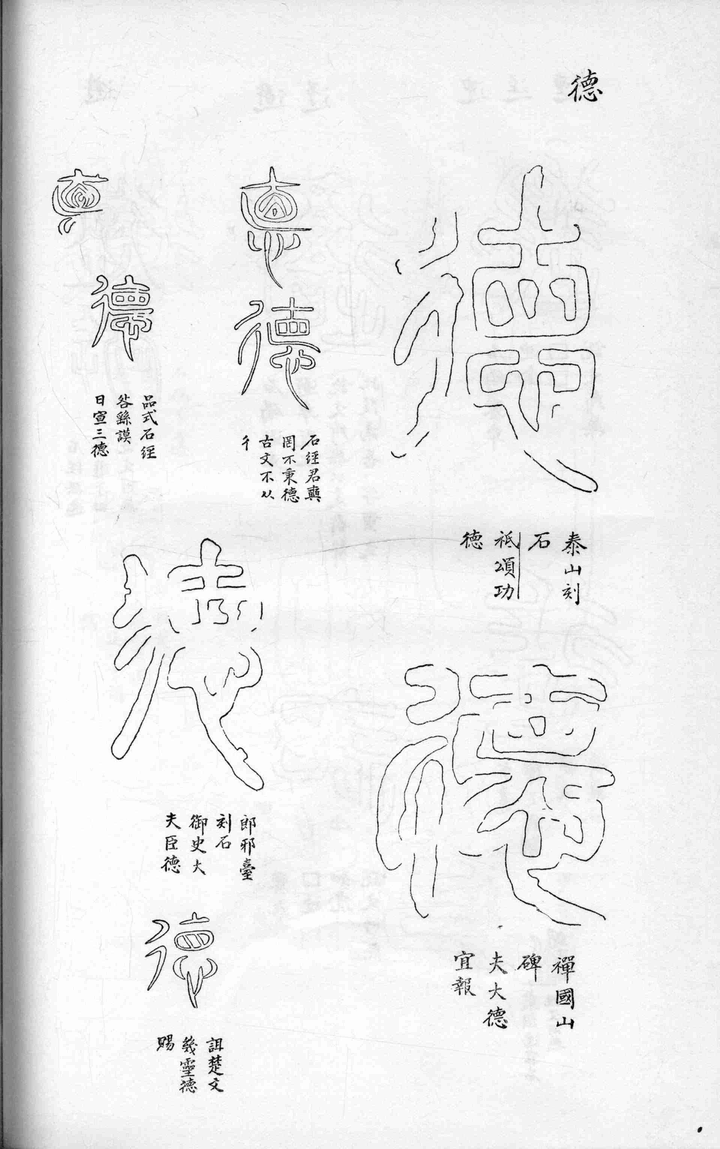 德
泰山刻
石
祗頌功
德
禪國山
碑
夫大德
宜報
石經君奭
罔不秉德
古文不从
彳
郎邪臺
刻石
御史大
夫臣德
詛楚文
幾靈德
賜
品式石經
咎繇謨
日宣三德